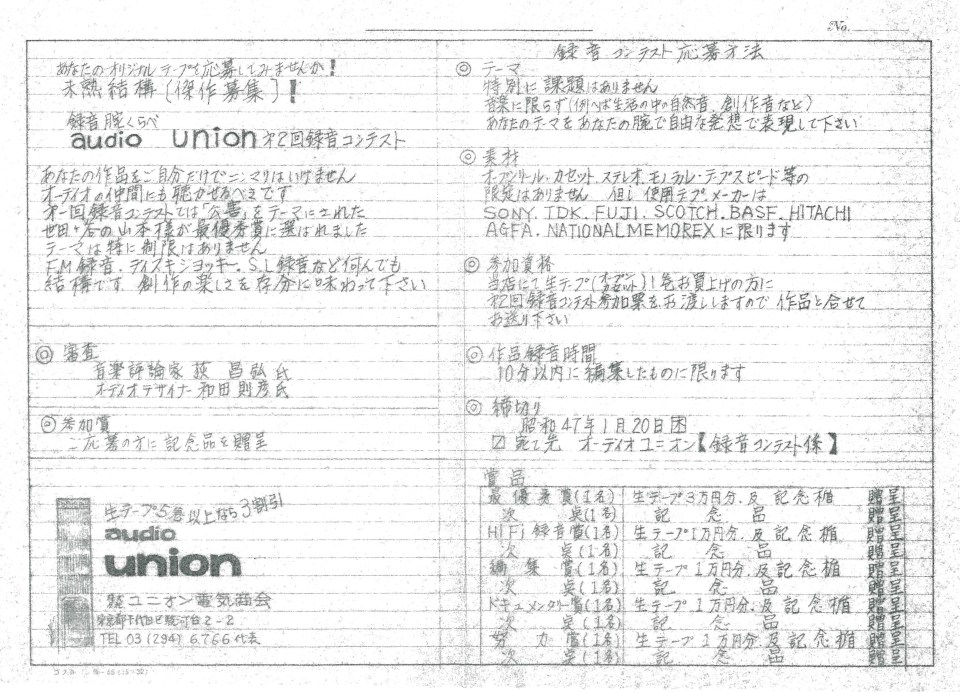 No.
あなたのオリジナルテープを応募してみませんか!
未熟結構〔傑作募集〕!
録音腕くらべ
audio union 第2回録音コンテスト
あなたの作品をご自分だけでニンマリはいけません
オーディオの仲間にも聴かせるべきです
第一回録音コンテストでは「公害」をテーマにされた
世田ヶ谷の山本様が最優秀賞に選ばれました
テーマは特に制限はありません
F.M録音.ディスキジョッキー.S.L録音など何んでも
結構です 創作の楽しさを存分に味わって下さい
◎ 審査
音楽評論家 荻 昌弘氏
オーディオデザイナー 和田則彦氏
◎ 参加賞
ご応募の方に記念品を贈呈
生テープ5巻以上なら3割引
audio
union
株式会社 ユニオン電気商会
東京都千代田区駿河台2-2
TEL 03 (294) 6766 代表
録音コンテスト応募方法
◎ テーマ
特別に課題はありません
音楽に限らず(例へば生活の中の自然音、創作音など)
あなたのテーマをあなたの腕で自由な発想で表現して下さい
◎ 素材
オープンリール.カセット.ステレオ.モノラル・テープスピード等の
限定はありません 但し使用テープメーカーは
SONY.TDK.FUJI.SCOTCH.BASF.HITACHI
AGFA.NATIONAL MEMOREXに限ります
◎ 参加資格
当店にて生テープ(オープン カセット)1巻お買上げの方に
第2回録音コンテスト参加票をお渡ししますので作品と合せて
お送り下さい
◎ 作品録音時間
10分以内に編集したものに限ります
◎ 締切り
昭和47年1月20日困
☑ 宛て先 オーディオユニオン【録音コンテスト係】
賞品
最優秀賞(1名) 生テープ3万円分.及記念楯 贈呈
次点(1名) 記念品 贈呈
HiFi録音賞(1名) 生テープ1万円分.及記念楯 贈呈
次点(1名) 記念品 贈呈
編集賞(1名) 生テープ1万円分.及記念楯 贈呈
次点(1名) 記念品 贈呈
ドキュメンタリー賞(1名) 生テープ1万円分.及記念楯 贈呈
次点(1名) 記念品 贈呈
努力賞(1名) 生テープ1万円分.及記念楯 贈呈
次点(1名) 記念品 贈呈